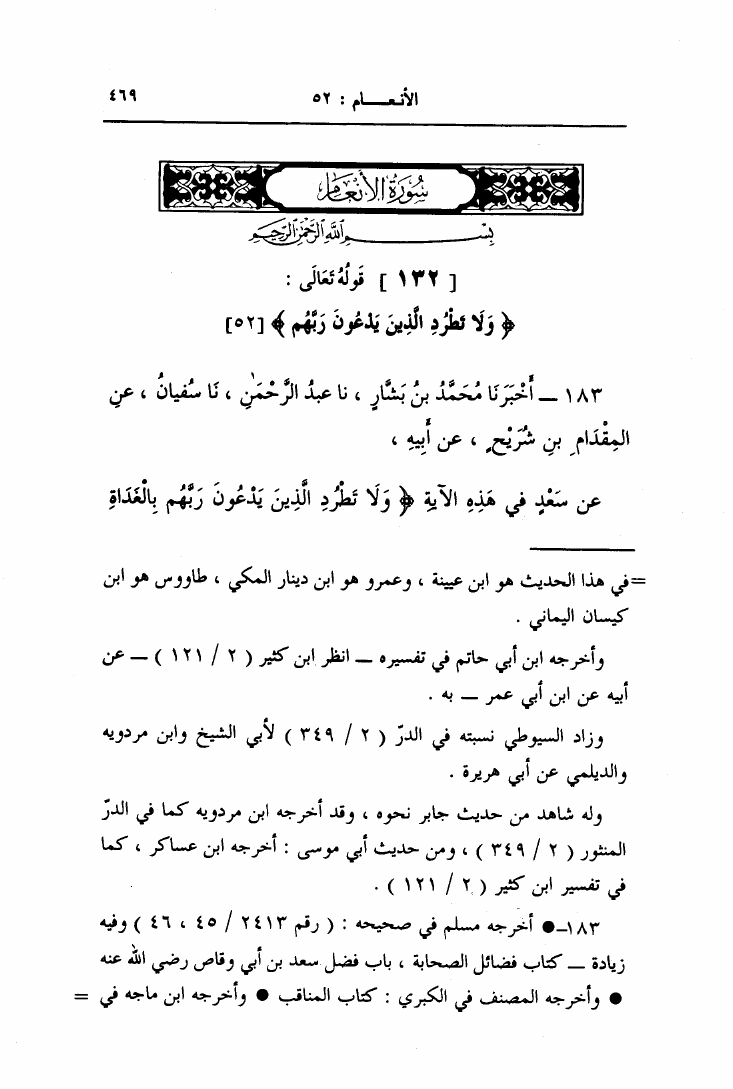 الأنعـــام : ٥٢ ٤٦٩
سُورَةُ الأَنْعَام
بِسْـــمِ اللَّهِ الرَّحْمَٰنِ الرَّحِيمِ
[ ١٣٢ ] قَولُهُ تَعَالَى :
﴿ وَلَا تَطْرُدِ الَّذِينَ يَدْعُونَ رَبَّهُم ﴾ [٥٢]
١٨٣ ــ أَخْبَرَنَا مُحَمَّدُ بنُ بَشَّارٍ ، نا عبدُ الرَّحْمَٰنِ ، نَا سُفيانُ ، عنِ
المِقْدَامِ بنِ شُرَيْحٍ ، عن أَبِيهِ ،
عن سَعْدٍ في هَذِهِ الآيةِ ﴿ وَلَا تَطْرُدِ الَّذِينَ يَدْعُونَ رَبَّهُم بِالْغَدَاةِ
=في هذا الحديث هو ابن عيينة ، وعمرو هو ابن دينار المكي ، طاووس هو ابن
كيسان اليماني .
وأخرجه ابن أبي حاتم في تفسيره ــ انظر ابن كثير ( ٢ / ١٢١ ) ــ عن
أبيه عن ابن أبي عمر ــ به .
وزاد السيوطي نسبته في الدرّ ( ٢ / ٣٤٩ ) لأبي الشيخ وابن مردويه
والديلمي عن أبي هريرة .
وله شاهد من حديث جابر نحوه ، وقد أخرجه ابن مردويه كما في الدرّ
المنثور ( ٢ / ٣٤٩ ) ، ومن حديث أبي موسى : أخرجه ابن عساكر ، كما
في تفسير ابن كثير ( ٢ / ١٢١ ) .
١٨٣ــ● أخرجه مسلم في صحيحه : ( رقم ٢٤١٣ / ٤٥ ، ٤٦ ) وفيه
زيادة ــ كتاب فضائل الصحابة ، باب فضل سعد بن أبي وقاص رضي الله عنه
● وأخرجه المصنف في الكبري : كتاب المناقب ● وأخرجه ابن ماجه في =